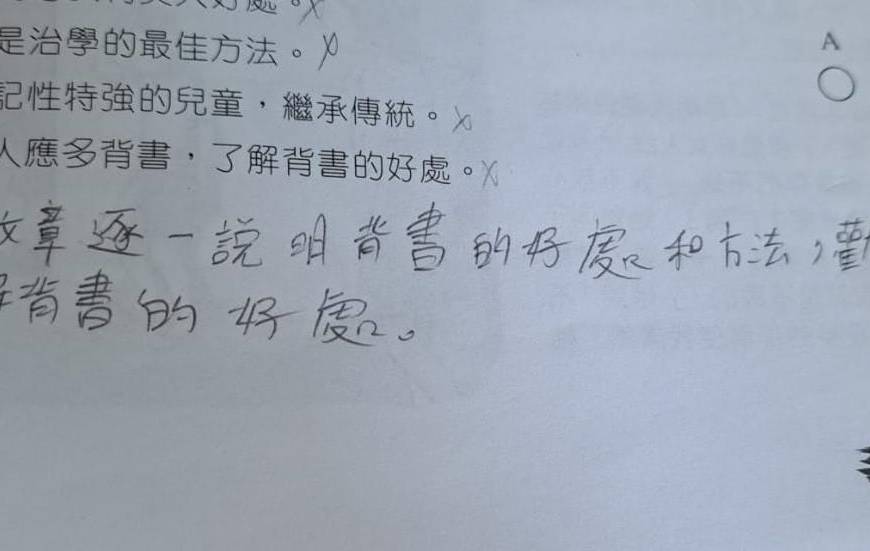 好處。X
是治學的最佳方法。X
A
記性特強的兒童,繼承傳統。X
人應多背書,了解背書的好處。X
章逐一說明背書的好處和方法,勸
背書的好處。